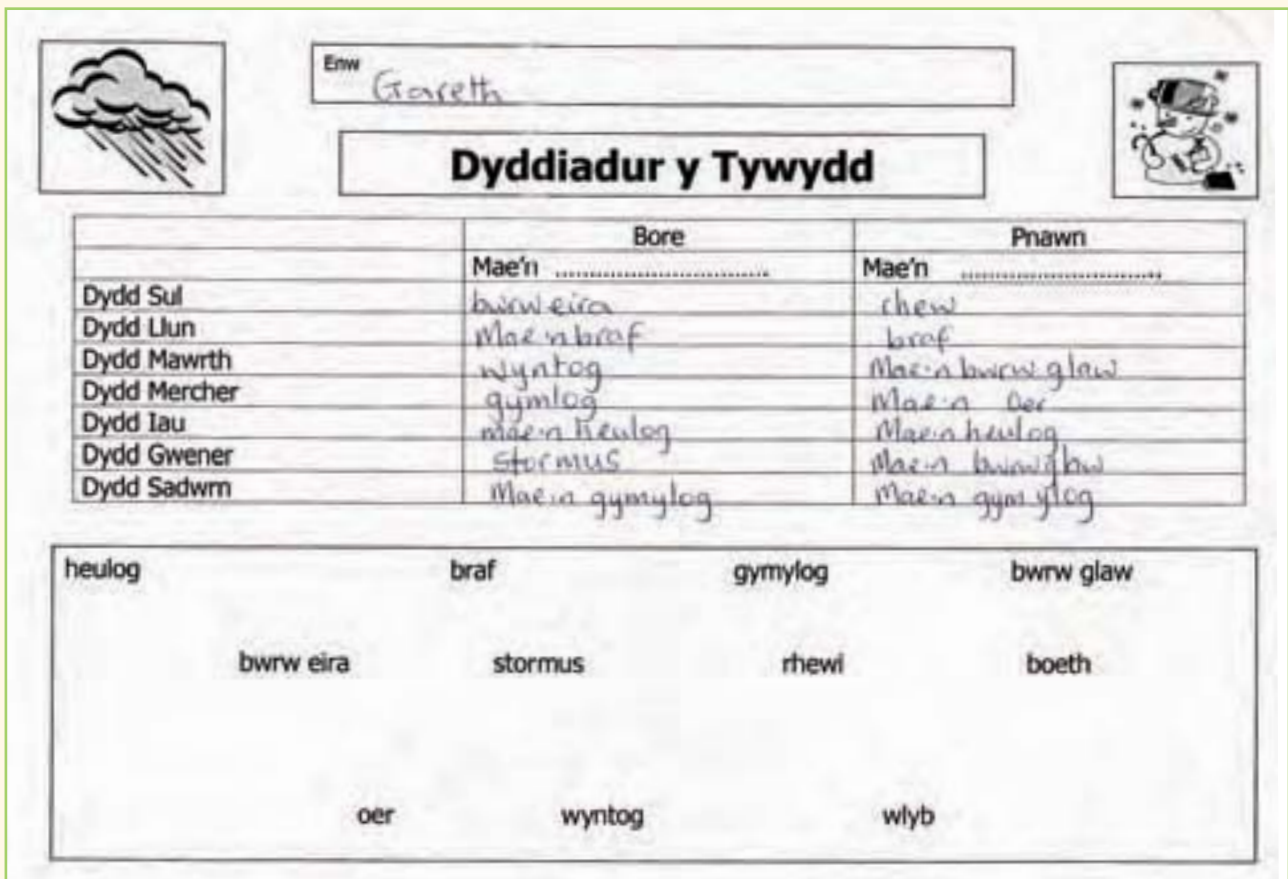 Enw
Gareth
Dyddiadur y Tywydd
Bore Pnawn
Mae'n ............................ Mae'n ............................
Dydd Sul bwrw eira rhew
Dydd Llun Mae'n braf braf
Dydd Mawrth wyntog Mae'n bwrw glaw
Dydd Mercher gymlog Mae'n oer
Dydd Iau mae'n heulog Mae'n heulog
Dydd Gwener stormus Mae'n bwrw
Dydd Sadwrn Mae'n gymylog Mae'n gymylog
heulog braf gymylog bwrw glaw
bwrw eira stormus rhewi boeth
oer wyntog wlyb